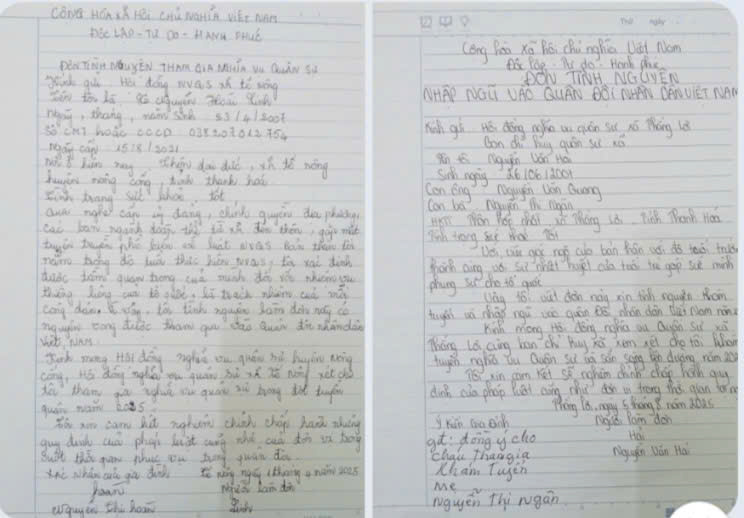 CỘNG HÓA XÃ HỘI CHỦ NGHĨA VIỆT NAM
ĐỘC LẬP - TỰ DO - HẠNH PHÚC
ĐƠN TÌNH NGUYỆN THAM GIA NGHĨA VỤ QUÂN SỰ
Kính gửi: Hội đồng NVQS xã Tế Nông
Tên tôi là: Nguyễn Hoài Linh
Ngày, tháng, năm sinh 23/4/2007
Số CMT hoặc CCCD 038207012754
Ngày cấp: 15/8/2021
Nơi ở hiện nay Thôn đại đức, xã tế nông
huyện nông cống, tỉnh thanh hoá
Tình trạng sức khỏe tốt
Qua nghe cấp ủy đảng, chính quyền địa phương,
các ban ngành đoàn thể từ xã đến thôn, gặp mặt
tuyên truyền phổ biến về luật NVQS Bản thân tôi
nằm trong độ tuổi thực hiện NVQS, tôi xác định
được tầm quan trọng của mình đối với nhiệm vụ
thiêng liêng của tổ quốc, là trách nhiệm của mỗi
công dân. Vì vậy, tôi tình nguyện làm đơn này có
nguyện vọng được tham gia vào Quân đội nhân dân
Việt NAM.
Kính mong Hội đồng nghĩa vụ quân sự huyện Nông
cống, Hội đồng nghĩa vụ quân sự xã tế Nông xét cho
tôi tham gia nghĩa vụ quân sự trong đợt tuyển
quân năm 2025
Tôi xin cam kết nghiêm chỉnh chấp hành những
quy định của pháp luật cũng như của đơn vị trong
suốt thời gian phục vụ trong quân đội.
Xác nhận của gia đình tế nông ngày 1 tháng 4 năm 2025
hoàn Người làm đơn
Nguyễn thị hoàn Linh
Thứ ngày
Cộng hòa xã hội chủ nghĩa Việt Nam
Độc lập - Tự do - Hạnh phúc
ĐƠN TÌNH NGUYỆN
NHẬP NGŨ VÀO QUÂN ĐỘI NHÂN DÂN VIỆT NAM
Kính gửi: Hội đồng nghĩa vụ quân sự xã Thắng Lợi
Ban chỉ huy quân sự xã
Tên tôi Nguyễn Văn Hải
Sinh ngày 26/06/2001
Con ông Nguyễn Văn Quang
Con bà Nguyễn Thị Ngân
HKTT Thôn hợp nhất xã Thắng Lợi Tỉnh Thanh Hoá
Tình trạng sức khoẻ Tốt
Với, của giác ngộ của bản thân với độ tuổi trưởng
thành cùng với sự nhiệt huyết của tuổi trẻ góp sức mình
phụng sự cho tổ quốc
Vậy tôi viết đơn này xin tình nguyện khám
tuyển và nhập ngũ vào quân Đội nhân dân Việt Nam năm
Kính mong Hội đồng nghĩa vụ Quân sự xã
Thắng Lợi cùng ban chỉ huy xã xem xét cho tôi khám
tuyển nghĩa vụ Quân sự và sẵn sàng lên đường năm 202
Tôi xin cam kết sẽ nghiêm chỉnh chấp hành quy
định của pháp luật cũng như đơn vị trong thời gian tại ngũ
Thắng lợi, ngày 5 tháng 8 năm 2025
Ý kiến Gia Đình Người làm đơn
gt: đồng ý cho Hải
cháu tham gia Nguyễn Văn Hải
Khám Tuyển
Mẹ
Nguyễn Thị Ngân